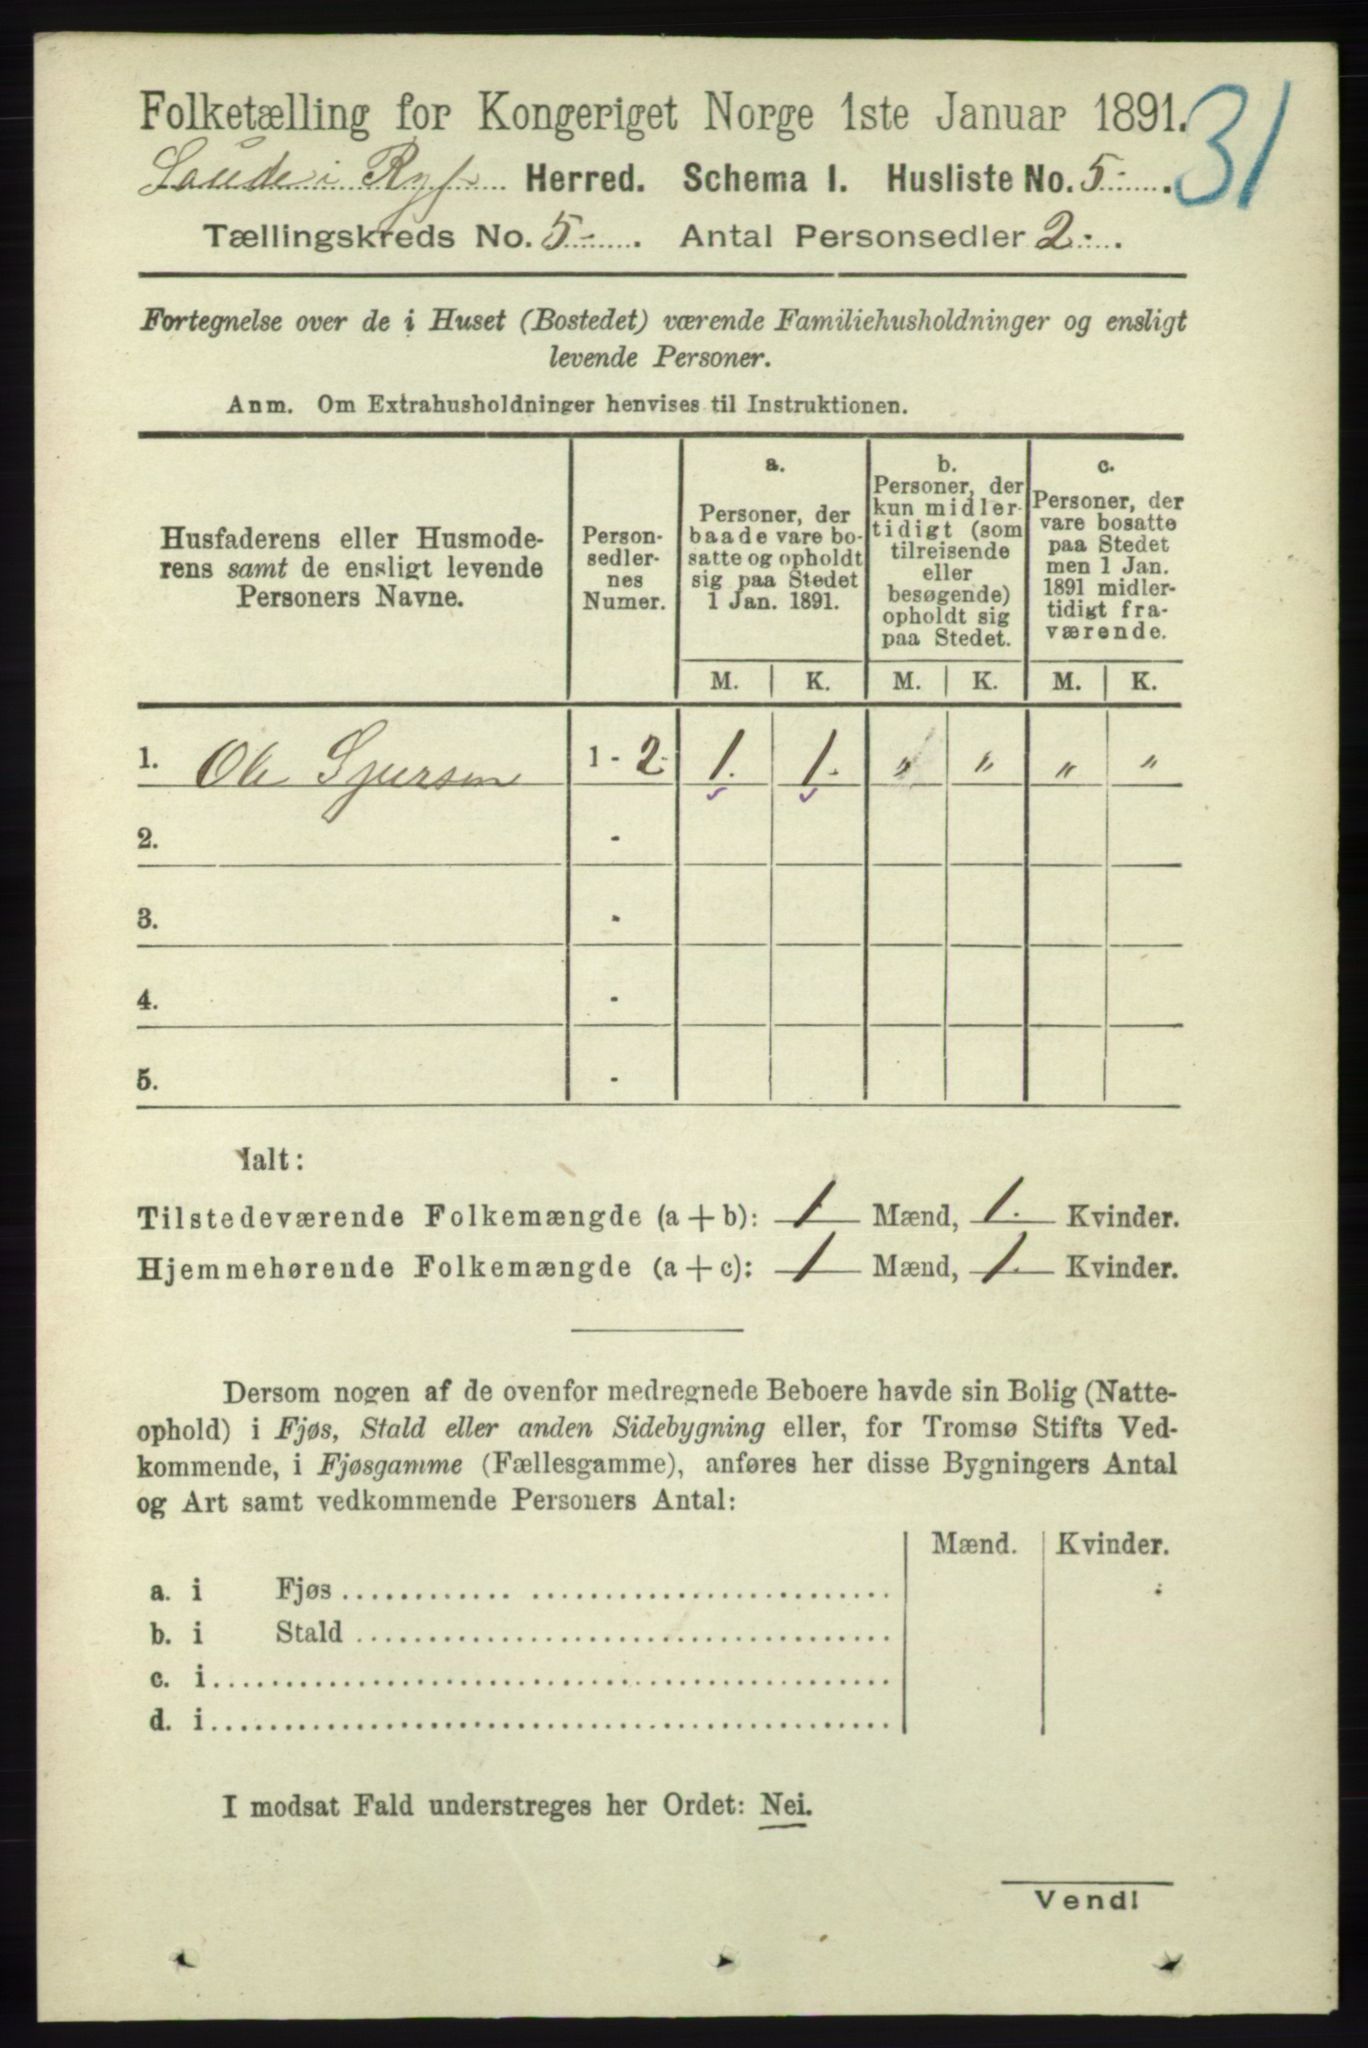 Folketælling for Kongeriget Norge 1ste Januar 1891.
31
Saude i Ryf. Herred. Schema I. Husliste No. 5-.
Tællingskreds No. 5-. Antal Personsedler 2-.
Fortegnelse over de i Huset (Bostedet) værende Familiehusholdninger og ensligt
levende Personer.
Anm. Om Extrahusholdninger henvises til Instruktionen.
Husfaderens eller Husmode-
rens samt de ensligt levende
Personers Navne.
Person-
sedler-
nes
Numer.
a.
Personer, der
baade vare bo-
satte og opholdt
sig paa Stedet
1 Jan. 1891.
b.
Personer, der
kun midler-
tidigt (som
tilreisende
eller
besøgende)
opholdt sig
paa Stedet.
c.
Personer, der
vare bosatte
paa Stedet
men 1 Jan.
1891 midler-
tidigt fra-
værende.
M. K. M. K. M. K.
1. Ole Sjursen 1 - 2- 1. 1. " " " "
2. -
3. -
4. -
5. -
Ialt:
Tilstedeværende Folkemængde (a + b): 1 Mænd, 1. Kvinder.
Hjemmehørende Folkemængde (a + c): 1 Mænd, 1. Kvinder.
Dersom nogen af de ovenfor medregnede Beboere havde sin Bolig (Natte-
ophold) i Fjøs, Stald eller anden Sidebygning eller, for Tromsø Stifts Ved-
kommende, i Fjøsgamme (Fællesgamme), anføres her disse Bygningers Antal
og Art samt vedkommende Personers Antal:
Mænd. Kvinder.
a. i Fjøs
b. i Stald
c. i
d. i
I modsat Fald understreges her Ordet: Nei.
Vend!